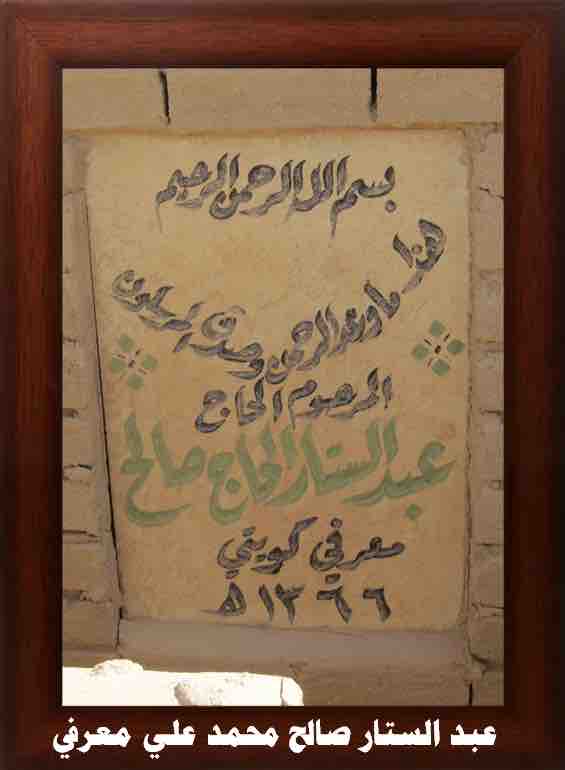 بسم الله الرحمن الرحيم
هذا ما وعد الرحمن وصدق المرسلون
المرحوم الحاج
عبد الستار الحاج صالح
معرفي كويتي
١٣٦٦ ه
عبد الستار صالح محمد علي معرفي